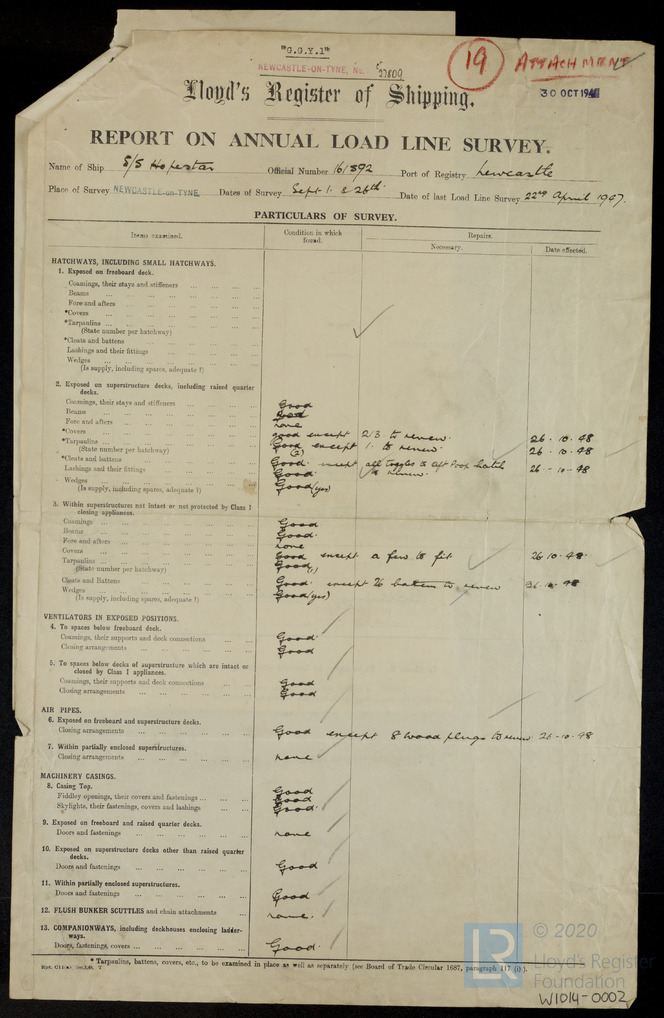 "G.G.Y.1"
NEWCASTLE-ON-TYNE, No. 
19 ATTACHMENT
Lloyd's Register of Shipping.
30 OCT
REPORT ON ANNUAL LOAD LINE SURVEY.
Name of Ship S/S Hopestar Official Number 161592 Port of Registry Newcastle
Place of Survey NEWCASTLE-ON-TYNE. Dates of Survey Sept 1. & 26th. Date of last Load Line Survey 22nd April 1947.
PARTICULARS OF SURVEY.
Items examined. Condition in which found. Repairs.
Necessary. Date effected.
HATCHWAYS, INCLUDING SMALL HATCHWAYS.
1. Exposed on freeboard deck.
Coamings, their stays and stiffeners
Beams
Fore and afters
*Covers
*Tarpaulins
(State number per hatchway)
*Cleats and battens
Lashings and their fittings
Wedges
(Is supply, including spares, adequate ?)
2. Exposed on superstructure decks, including raised quarter decks.
Coamings, their stays and stiffeners Good
Beams Good
Fore and afters none
*Covers good except 2/3 to renew. 26-10-48
*Tarpaulins Good except 1. to renew. 26-10-48
(State number per hatchway) (2)
*Cleats and battens Good except all toggles to aft Poop hatch to renew. 26-10-48
Lashings and their fittings Good
Wedges Good (yes)
(Is supply, including spares, adequate ?)
3. Within superstructures not intact or not protected by Class I closing appliances.
Coamings Good
Beams Good.
Fore and afters none
Covers Good except a few to fit 26 10-48.
Tarpaulins Good
(State number per hatchway)
Cleats and Battens Good. except 26 batten to renew 26-10-48
Wedges Good (yes)
(Is supply, including spares, adequate ?)
VENTILATORS IN EXPOSED POSITIONS.
4. To spaces below freeboard deck.
Coamings, their supports and deck connections Good.
Closing arrangements Good
5. To spaces below decks of superstructure which are intact or closed by Class I appliances.
Coamings, their supports and deck connections Good
Closing arrangements Good
AIR PIPES.
6. Exposed on freeboard and superstructure decks.
Closing arrangements Good except 8 wood plugs to renew 26-10-48
7. Within partially enclosed superstructures.
Closing arrangements none
MACHINERY CASINGS.
8. Casing Top. Good
Fiddley openings, their covers and fastenings Good
Skylights, their fastenings, covers and lashings Good
9. Exposed on freeboard and raised quarter decks.
Doors and fastenings none
10. Exposed on superstructure decks other than raised quarter decks.
Doors and fastenings Good
11. Within partially enclosed superstructures.
Doors and fastenings Good
12. FLUSH BUNKER SCUTTLES and chain attachments none.
13. COMPANIONWAYS, including deckhouses enclosing ladderways.
Doors, fastenings, covers Good.
* Tarpaulins, battens, covers, etc., to be examined in place as well as separately (see Board of Trade Circular 1687, paragraph 117 (i).).
LR © 2020
Lloyd's Register
Foundation
W1014-0002